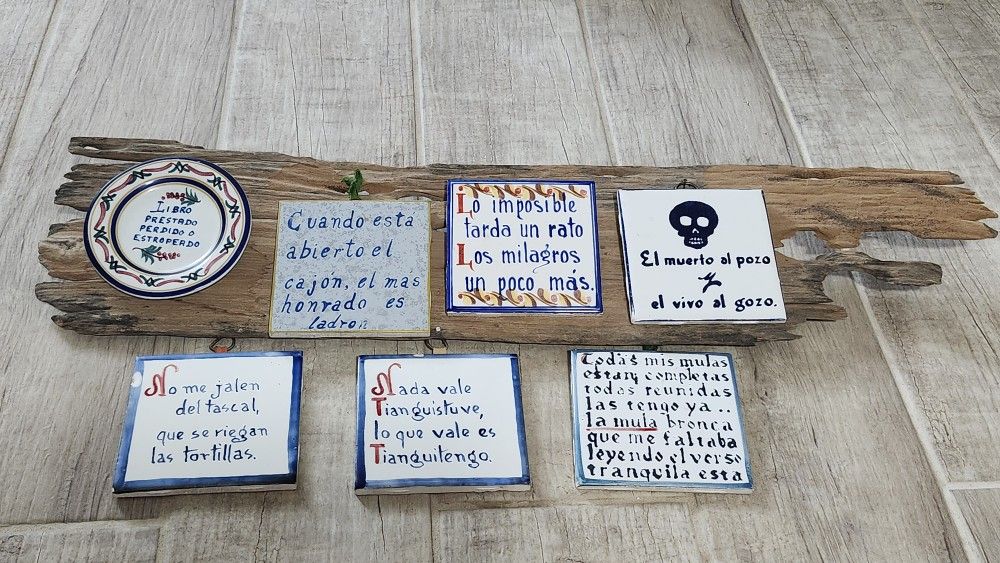 LIBRO
PRESTADO
PERDIDO O
ESTROPEADO
Cuando esta
abierto el
cajón, el mas
honrado es
ladron
Lo imposible
tarda un rato
Los milagros
un poco más.
El muerto al pozo
y
el vivo al gozo.
No me jalen
del tascal,
que se riegan
las tortillas.
Nada vale
Tianguistuve,
lo que vale es
Tianguitengo.
Todas mis mulas
estan completas
todas reunidas
las tengo ya..
la mula bronca
que me faltaba
leyendo el verso
tranquila esta